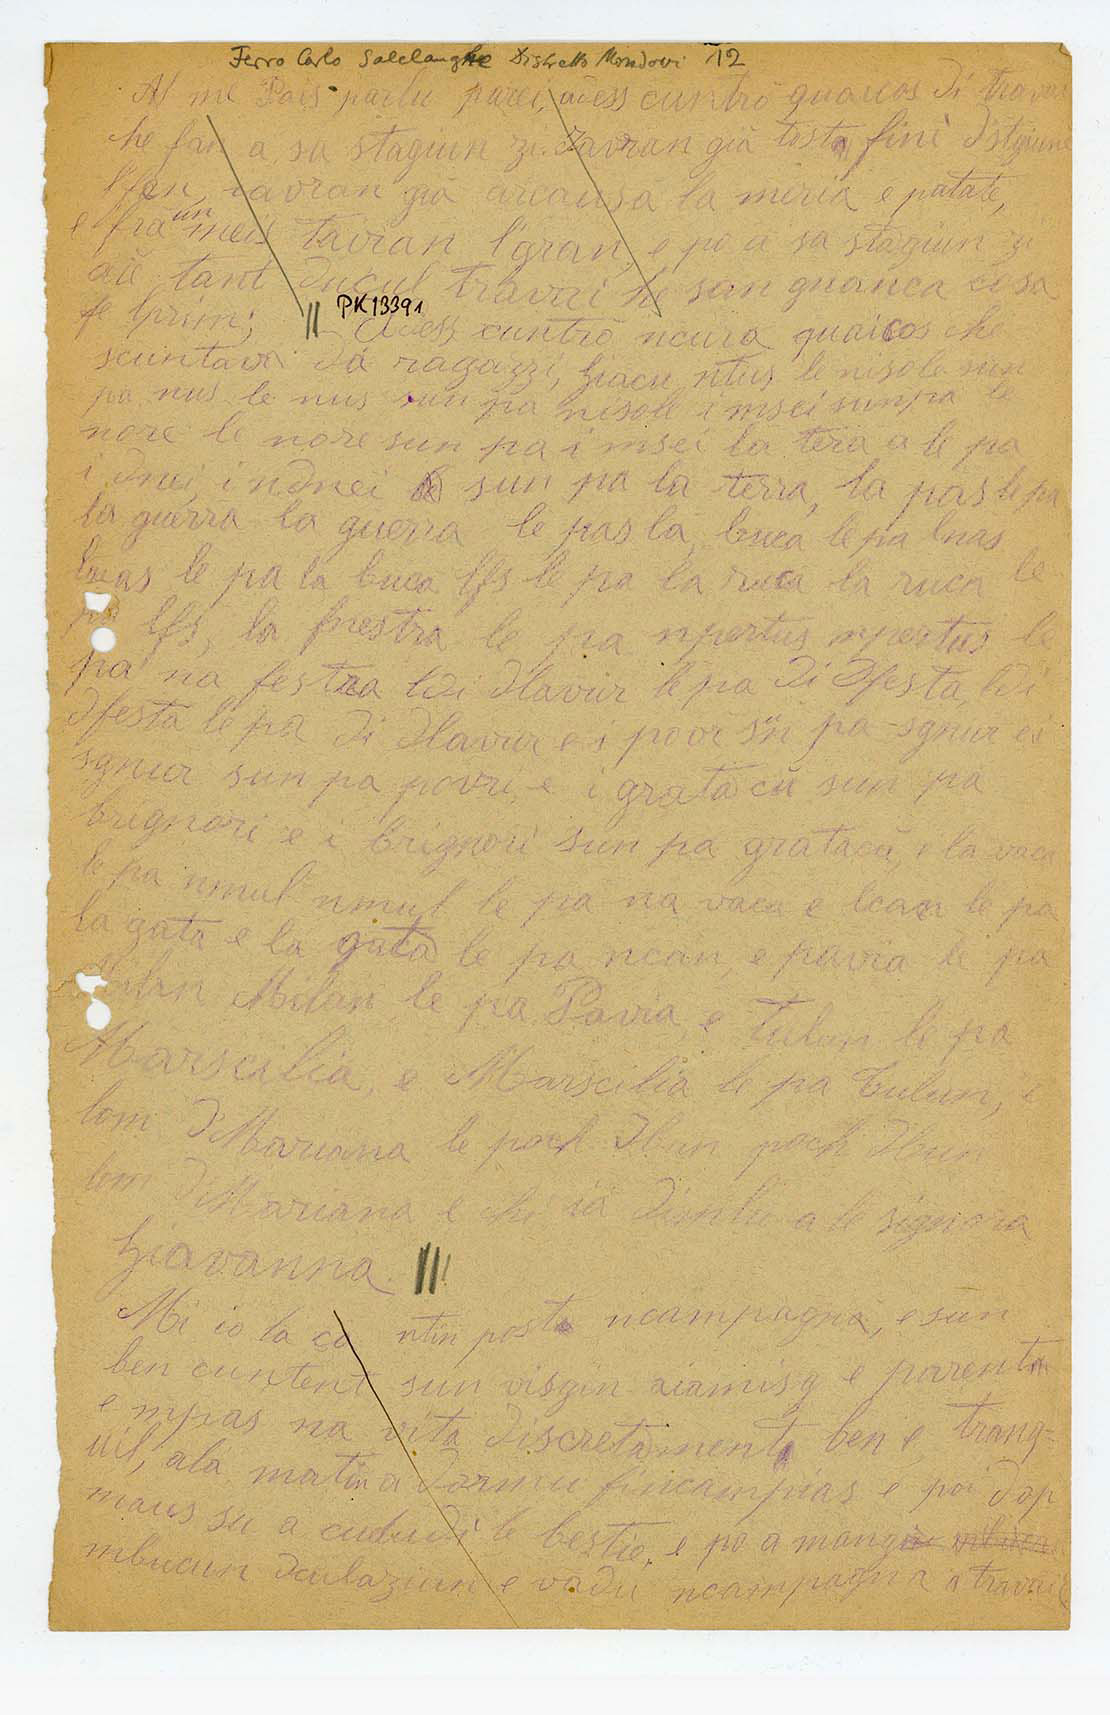 Ferro Carlo Salelanghe Distretto Mondovì 12
Al me Pais parlu parei, adess cuntrò quaicos di travai
he fan a sa stagiun zi. Javran già tosta fini dstgiuné
l'fen, iavran già arcausà la meria e patate,
e fra un meis tairan l'gran, e po a sa stagiun zi
aié tant ducul travai he san gnanca cosa
fe lprim; II PK13391 Adess cuntrò ncura quaicos che
scuntava da ragazzi, hiacu ntus le nisole sun
pa nus le nus sun pa nisole i msei sun pa le
nore le nore sun pa i msei la tera a le pa
i dnei, i ndnei sun pa la terra, la pas le pa
la guerra la guerra le pas la, buca le pa lnas
lnas le pa la buca lfs le pa la ruca la ruca le
pa lfs, la fnestra le pa npertus npertus le
pa na festra ldi dlavur le pa di dfesta, ldi
dfesta le pa di dlavur e i povr sün pa sgnur e i
sgnur sun pa povri, e i gratacü sun pa
brignori e i brignori sun pa gratacü, e la vaca
le pa nmul nmul le pa na vaca e lcan le pa
la gata e la gata le pa ncan, e pavia le pa
Milan Milan le pa Pavia, e tulun le pa
Marscilia, e Marscilia le pa Tulun, e
lom d'Mariana le poch dbun poch dbun
lom d'Mariana e chi ia dimlu a le signora
Giavanna. III
Mi io la ca ntin post ncampagna, e sun
ben cuntent sun visgin aiamisg e parent
e mpas na vita discretament ben e trang=
uil, alá matin a dormu fincampias e poi dop
maus su a cududi le bestie, e po a mangi
mbucun dculaziun e vadu ncampagna a travai